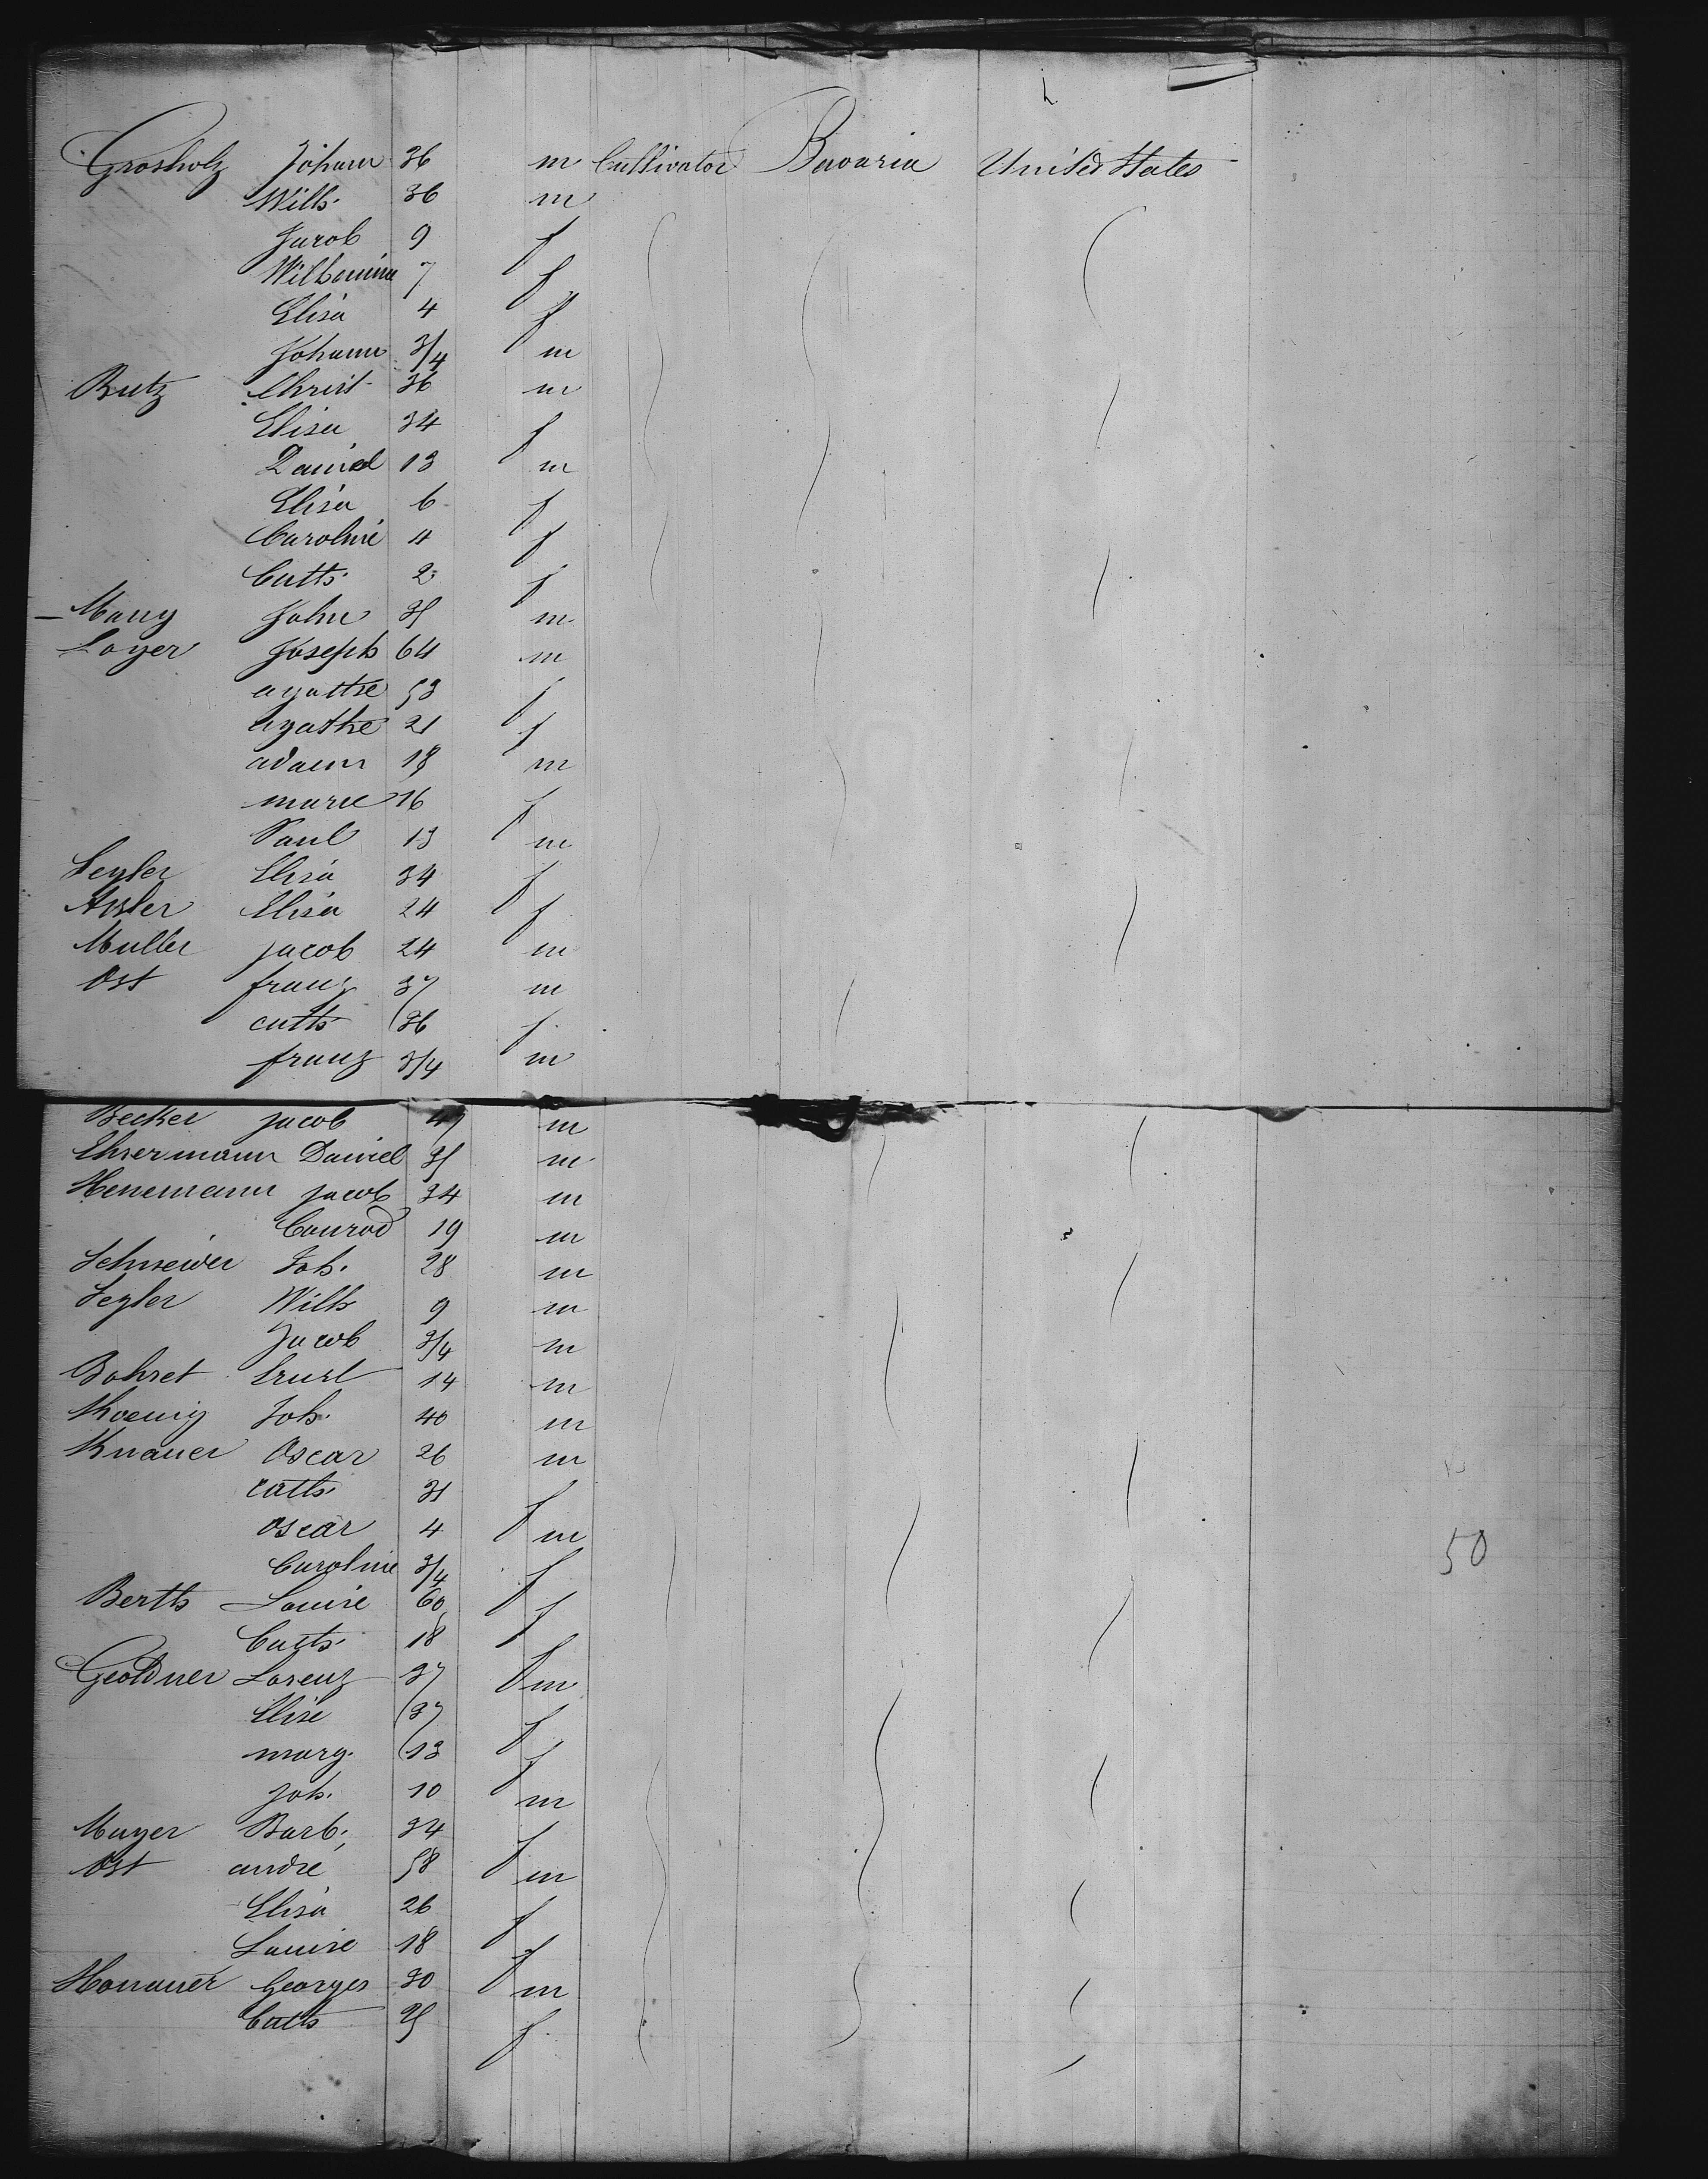 Grosholz Johann 36 m Cultivator Bavaria United States
Wilh. 36 m
Jacob 9 f
Wilhemine 7 f
Elisa 4 f
Johann 3/4 m
Butz Christ 36 m
Elisa 34 f
Daniel 13 m
Elisa 6 f
Caroline 4 f
Cath. 2 f
Mang John 35 m
Loyer Joseph 64 m
agathe 53 f
agathe 21 f
adam 18 m
marie 16 f
Paul 13 m
Segler Elisa 34 f
Elisa 24 f
Muller jacob 24 m
Ost franz 37 m
cath 36 f
franz 3/4 m
Becker jacob 47 m
Ehsermann Daniel 35 m
Henemann jacob 34 m
Conrad 19 m
Schneider Joh. 28 m
Segler Wilh 9 m
Jacob 3/4 m
Bohret Ernst 14 m
Koenig Joh. 40 m
Knauer Oscar 26 m
cath. 31 f
oscar 4 m
Caroline 3/4 f
50
Berth Louise 60 f
Cath. 18 f
Geoldner Lorenz 37 m
Elise 37 f
marg. 13 f
joh. 10 m
Mayer Barb. 34 f
Ost andré 58 m
Elisa 26 f
Louise 18 f
Honauer Georges 30 m
Cath 25 f